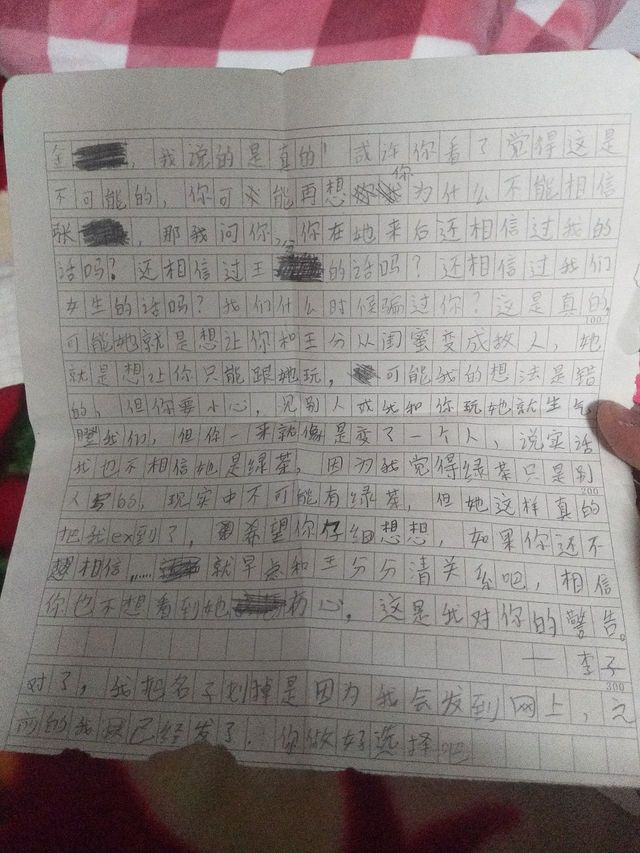 金，我说的是真的！或许你看了觉得这是
不可能的，你可能再想你为什么不能相信
张，那我问你，你在她来后还相信过我的
话吗？还相信过王的话吗？还相信过我们
女生的话吗？我们什么时候骗过你？这是真的，
100
可能她就是想让你和王分从闺蜜变成敌人，她
就是想让你只能跟她玩，可能我的想法是错
的，但你要小心，见别人或我和你玩她就生气
瞪我们，但你一来就像是变了一个人，说实话
我也不相信她是绿茶，因为我觉得绿茶只是别
200
人写的，现实中不可能有绿茶，但她这样真的
把我ex到了，希望你仔细想想，如果你还不
想相信……就早点和王分分清关系吧，相信
你也不想看到她伤心。这是我对你的警告。
—李子
300
对了，我把名字划掉是因为我会发到网上，之
前的我已经发了．你做好选择吧